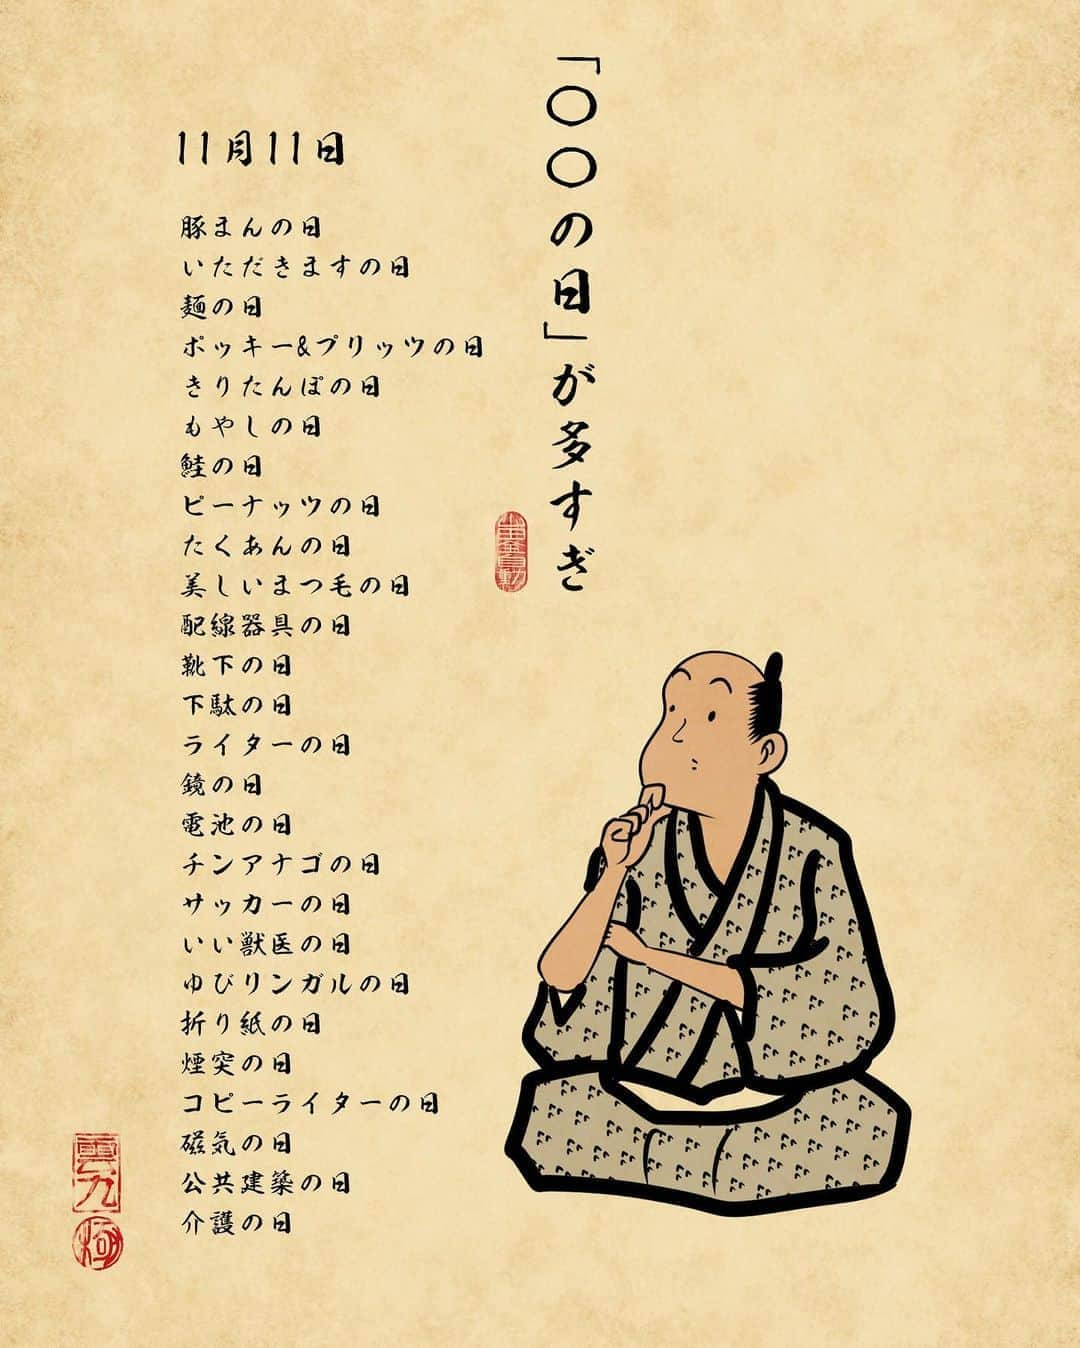 「〇〇の日」が多すぎ
11月11日
豚まんの日
いただきますの日
麺の日
ポッキー&プリッツの日
きりたんぽの日
もやしの日
鮭の日
ピーナッツの日
たくあんの日
美しいまつ毛の日
配線器具の日
靴下の日
下駄の日
ライターの日
鏡の日
電池の日
チンアナゴの日
サッカーの日
いい獣医の日
ゆびリンガルの日
折り紙の日
煙突の日
コピーライターの日
磁気の日
公共建築の日
介護の日